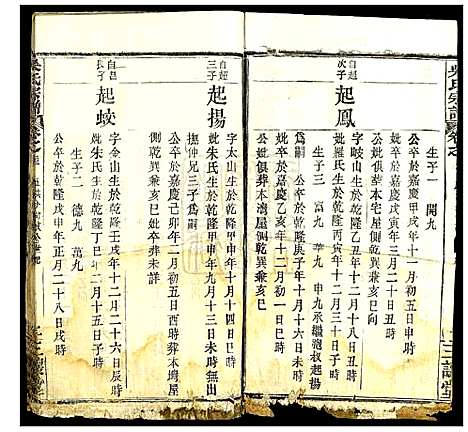 吳氏宗譜
生子一 開九
公卒於嘉慶甲戌年十一月初五日申時
妣卒於嘉慶戊寅年三月二十日丑時
公妣俱葬本宅屋側乾巽兼亥巳向
自超次子
起鳳
字岐山生於乾隆乙丑年十二月十八日丑時
妣羅氏生於乾隆丙寅年十二月三十日子時
生子三 富九 華九 申九承繼胞叔起揚
公卒於乾隆庚子年十月十六日寅時
妣卒於嘉慶乙亥年十一月初一日巳時
公妣俱葬本灣屋側乾巽兼亥巳
自超三子
起揚
字太山生於乾隆甲申年十月十四日戌時
妣朱氏生於乾隆甲申年九月十三日未時無出
撫仲兄三子為嗣
公卒於嘉慶己卯年二月初五日酉時葬木塆屋
側乾巽兼亥巳妣卒葬未詳
自昌長子
起蛟
字金山生於乾隆壬戌年十二月二十六日辰時
妣朱氏生於乾隆丁巳年二月十五日戌時
生子二 德九 萬九
公卒於乾隆戊申年正月二十八日戌時
吳氏宗譜
三讓堂